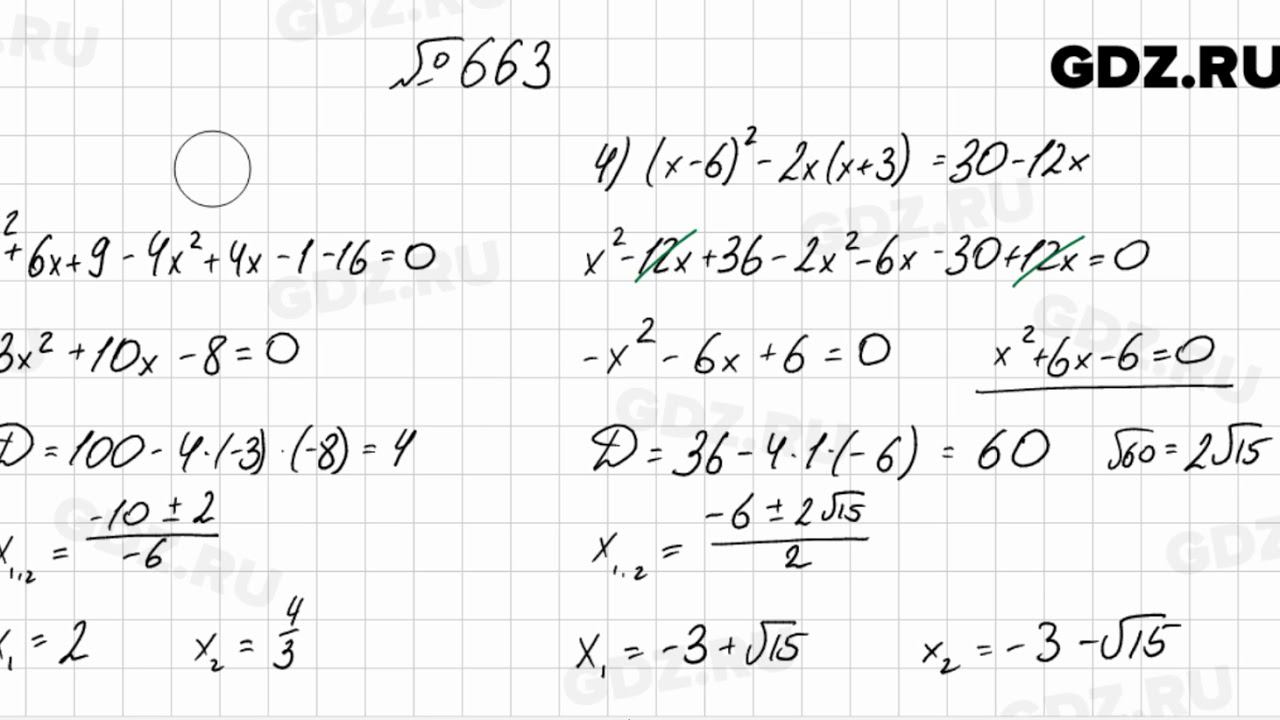 №663
GDZ.RU
² + 6x + 9 - 4x² + 4x - 1 - 16 = 0
3x² + 10x - 8 = 0
D = 100 - 4·(-3)·(-8) = 4
x₁,₂ = (-10 ± 2)/(-6)
x₁ = 2    x₂ = 4/3
4) (x-6)² - 2x(x+3) = 30 - 12x
x² - 12x + 36 - 2x² - 6x - 30 + 12x = 0
-x² - 6x + 6 = 0    x² + 6x - 6 = 0
D = 36 - 4·1·(-6) = 60    √60 = 2√15
x₁.₂ = (-6 ± 2√15)/2
x₁ = -3 + √15    x₂ = -3 - √15